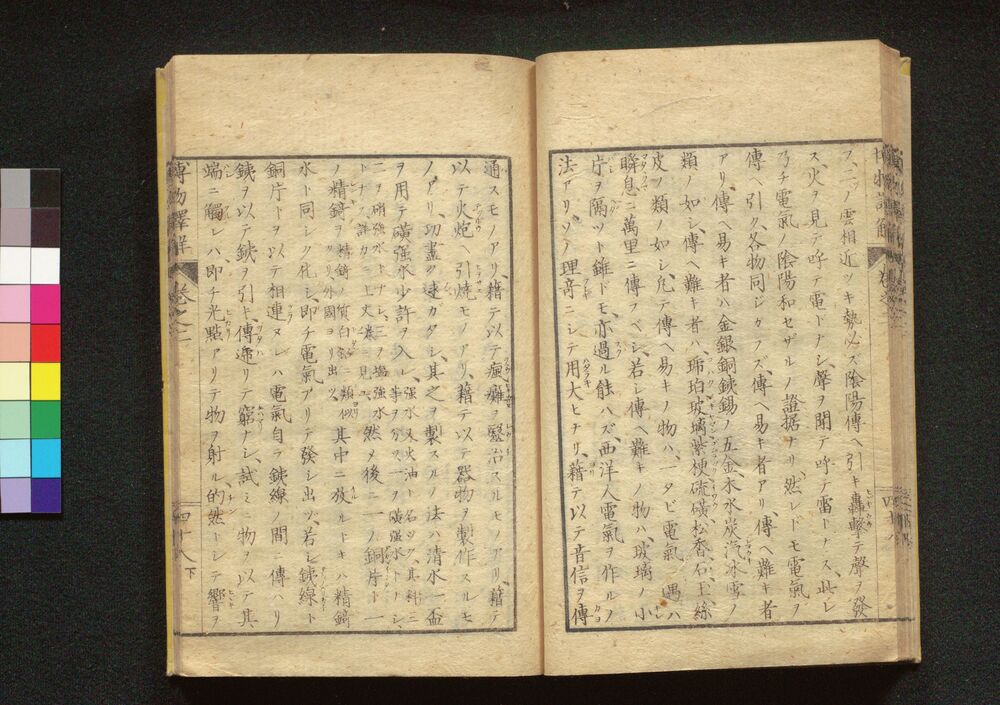 フ、二ツノ雲相近ツキ勢必ス陰陽傳ヘ引キ轟撃テ聲ヲ發
ス、火ヲ見テ呼テ電トナシ、聲ヲ聞テ呼テ雷トナス、此レ
乃チ電氣ノ陰陽和セザルノ證据ナリ、然レドモ電氣ヲ
傳ヘ引ク、各物同ジカラズ、傳ヘ易キ者アリ、傳ヘ難キ者
アリ、傳ヘ易キ者ハ金銀銅鉄錫ノ五金、木水炭汽冰雪ノ
類ノ如シ、傳ヘ難キ者ハ、琥珀玻璃紫梗硫磺松香石玉絲
皮ノ類ノ如シ、凡テ傳ヘ易キノ物ハ、一タビ電氣ニ遇ハ
瞬息ニ萬里ニ傳フベシ、若シ傳ヘ難キノ物ハ、玻璃ノ小
片ヲ隔ツト雖ドモ、亦過ル能ハズ、西洋人電氣ヲ作ルノ
法アリ、ソノ理奇ニシテ用大ヒナリ、藉テ以テ音信ヲ傳
通スモノアリ、藉テ以テ瘋癱ヲ醫治スルモノアリ、藉テ
以テ火炮ヲ引燒モノアリ、藉テ以テ器物ヲ製作スルモ
ノアリ、功盡ク速カタシ、其之ヲ製スルノ法ハ清水一盃
ヲ用テ磺强水少許ヲ入レ、强水又火油ト名ツク、其料ニ三等ヲ分ス、一ヲ磺强水トナシ、
二ヲ硝强水トナシ、三ヲ塩强水トナス、詳カニ上文ニ見ユ、然メ後ニ一ノ銅片ト一
ノ精錡ヲ精錡ノ質白鉛ニ類似リ、外國ヨリ出ツ、其中ニ放ルトキハ精錡
水ト同シク化シ、即チ電氣アリテ發シ出ツ、若シ鉄線ト
銅片トヲ以テ相連ヌレハ電氣自ラ鉄線ノ間ニ傳ハリ
鉄ヲ以テ鉄ヲ引ト、傳遞リテ窮ナシ、試ミニ物ヲ以テ其
端ニ觸レハ即チ光點アリテ物ヲ射ル、的然トシテ響ヲ
博物譯解
卷之二
四十八
下